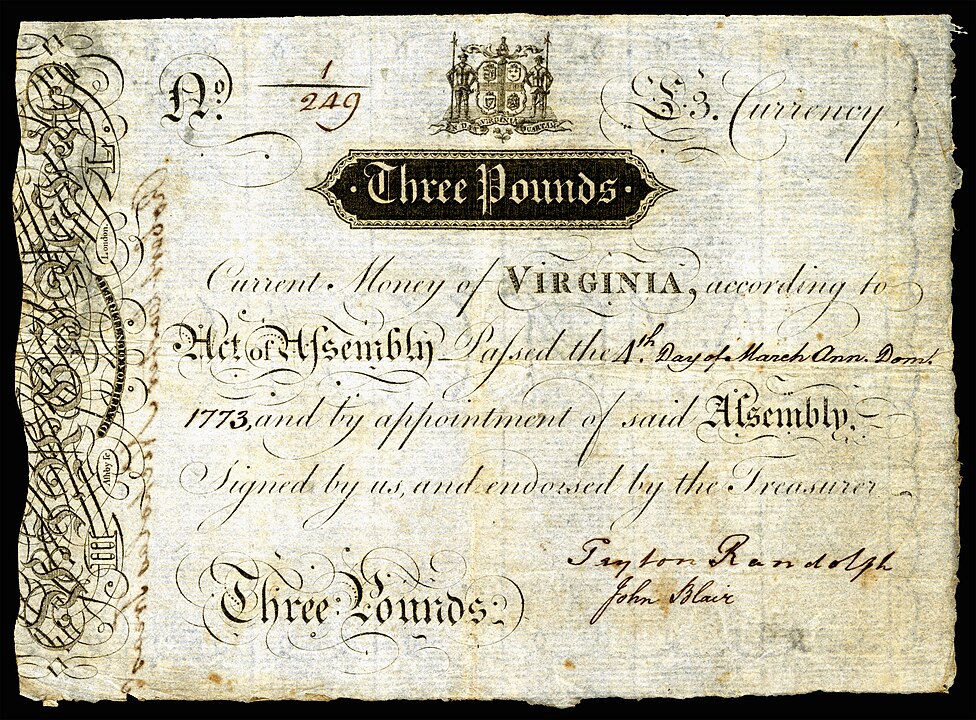 No. 1
249
£3. Currency.
EN DAT VIRGINIA QUARTAM
Three Pounds
Current Money of VIRGINIA, according to
Act of Assembly Passed the 4th. Day of March Ann. Dom:
1773, and by appointment of said Assembly,
Signed by us, and endorsed by the Treasurer
Peyton Randolph
John Blair
Three Pounds:
London
Ashby Sc